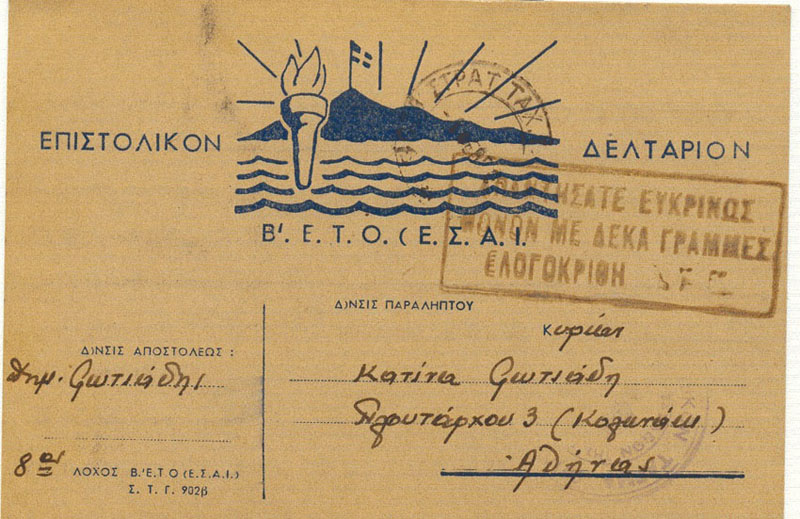 ΕΠΙΣΤΟΛΙΚΟΝ ΔΕΛΤΑΡΙΟΝ
ΣΤΡΑΤ ΤΑΧ
Β'. Ε. Τ. Ο. (Ε. Σ. Α. Ι.
ΑΠΑΝΤΗΣΑΤΕ ΕΥΚΡΙΝΩΣ
ΜΟΝΟΝ ΜΕ ΔΕΚΑ ΓΡΑΜΜΕΣ
ΕΛΟΓΟΚΡΙΘΗ
Δ)ΝΣΙΣ ΠΑΡΑΛΗΠΤΟΥ
Κυρίαν
Δ)ΝΣΙΣ ΑΠΟΣΤΟΛΕΩΣ :
Δημ. Φωτιάδης
Κατίνα Φωτιάδη
Πλουτάρχου 3 (Κολωνάκι)
Αθήνας
8ος ΛΟΧΟΣ Β.'Ε.Τ Ο (Ε.Σ.Α.Ι.)
Σ. Τ. Γ. 902β